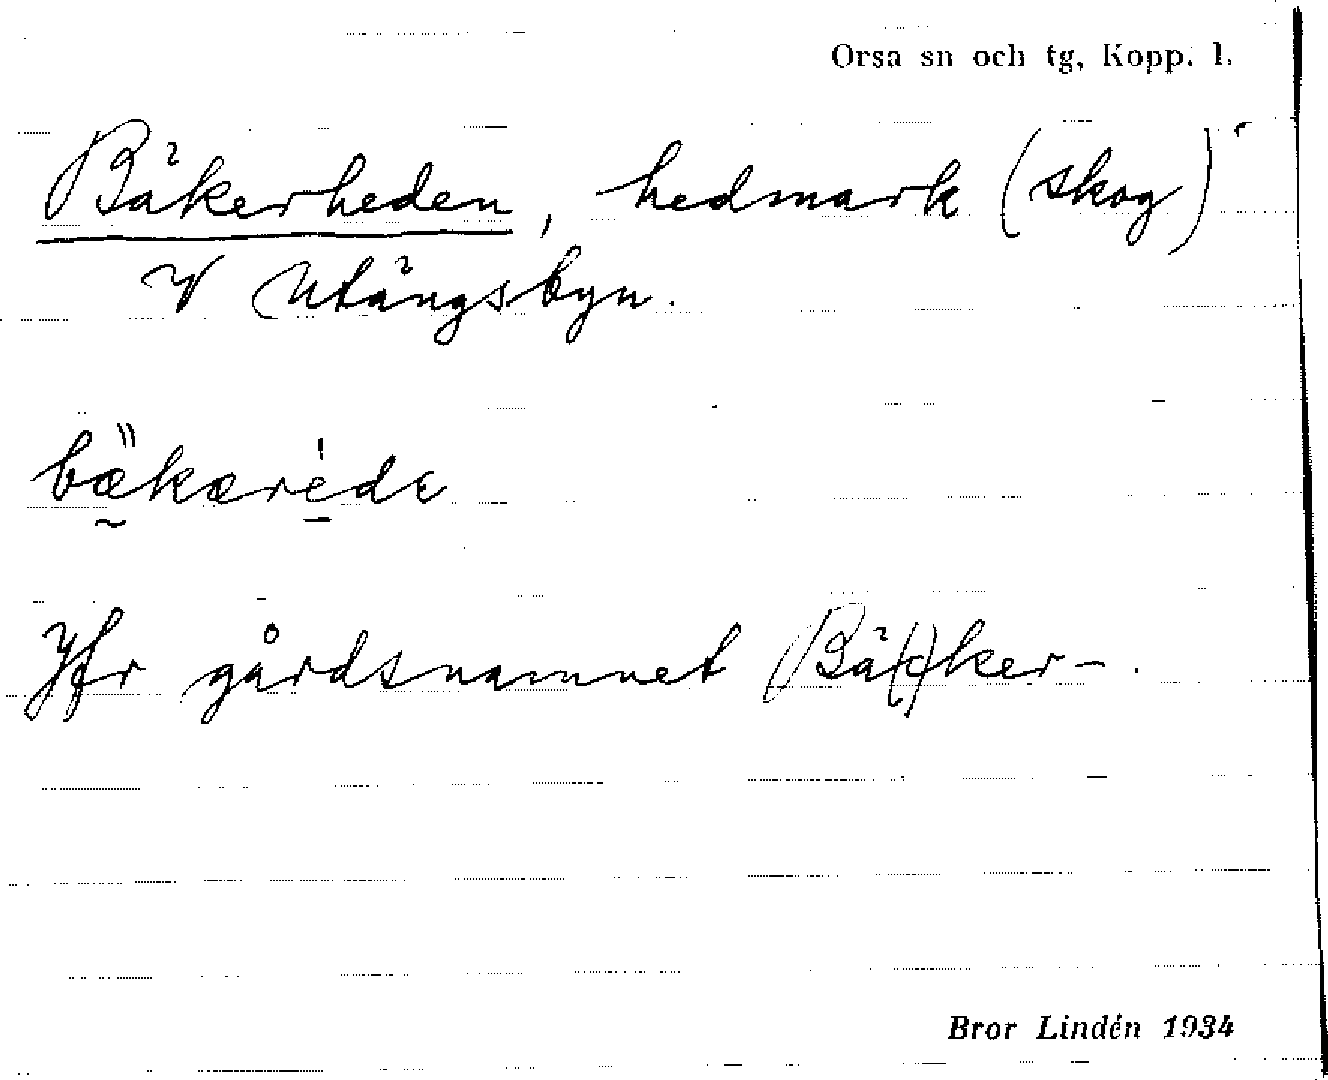 Orsa sn och tg, Kopp. l.
Bäkerheden, hedmark (skog)
V Utängsbyn.
bäkæréde
Jfr gårdsnamnet Bä(c)ker-.
Bror Lindén 1934